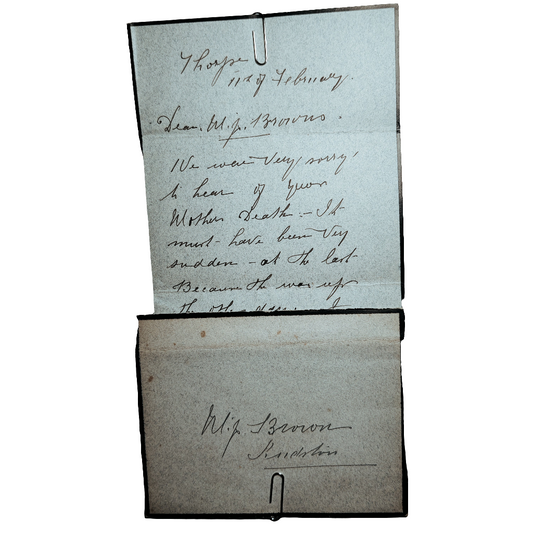 Thorpe
11th of February.
Dear Miss Browns.
We were very sorry,
to hear of your
Mothers Death - It
must have been very
sudden - at the last
Because She was up
the other day. I
Miss Brown